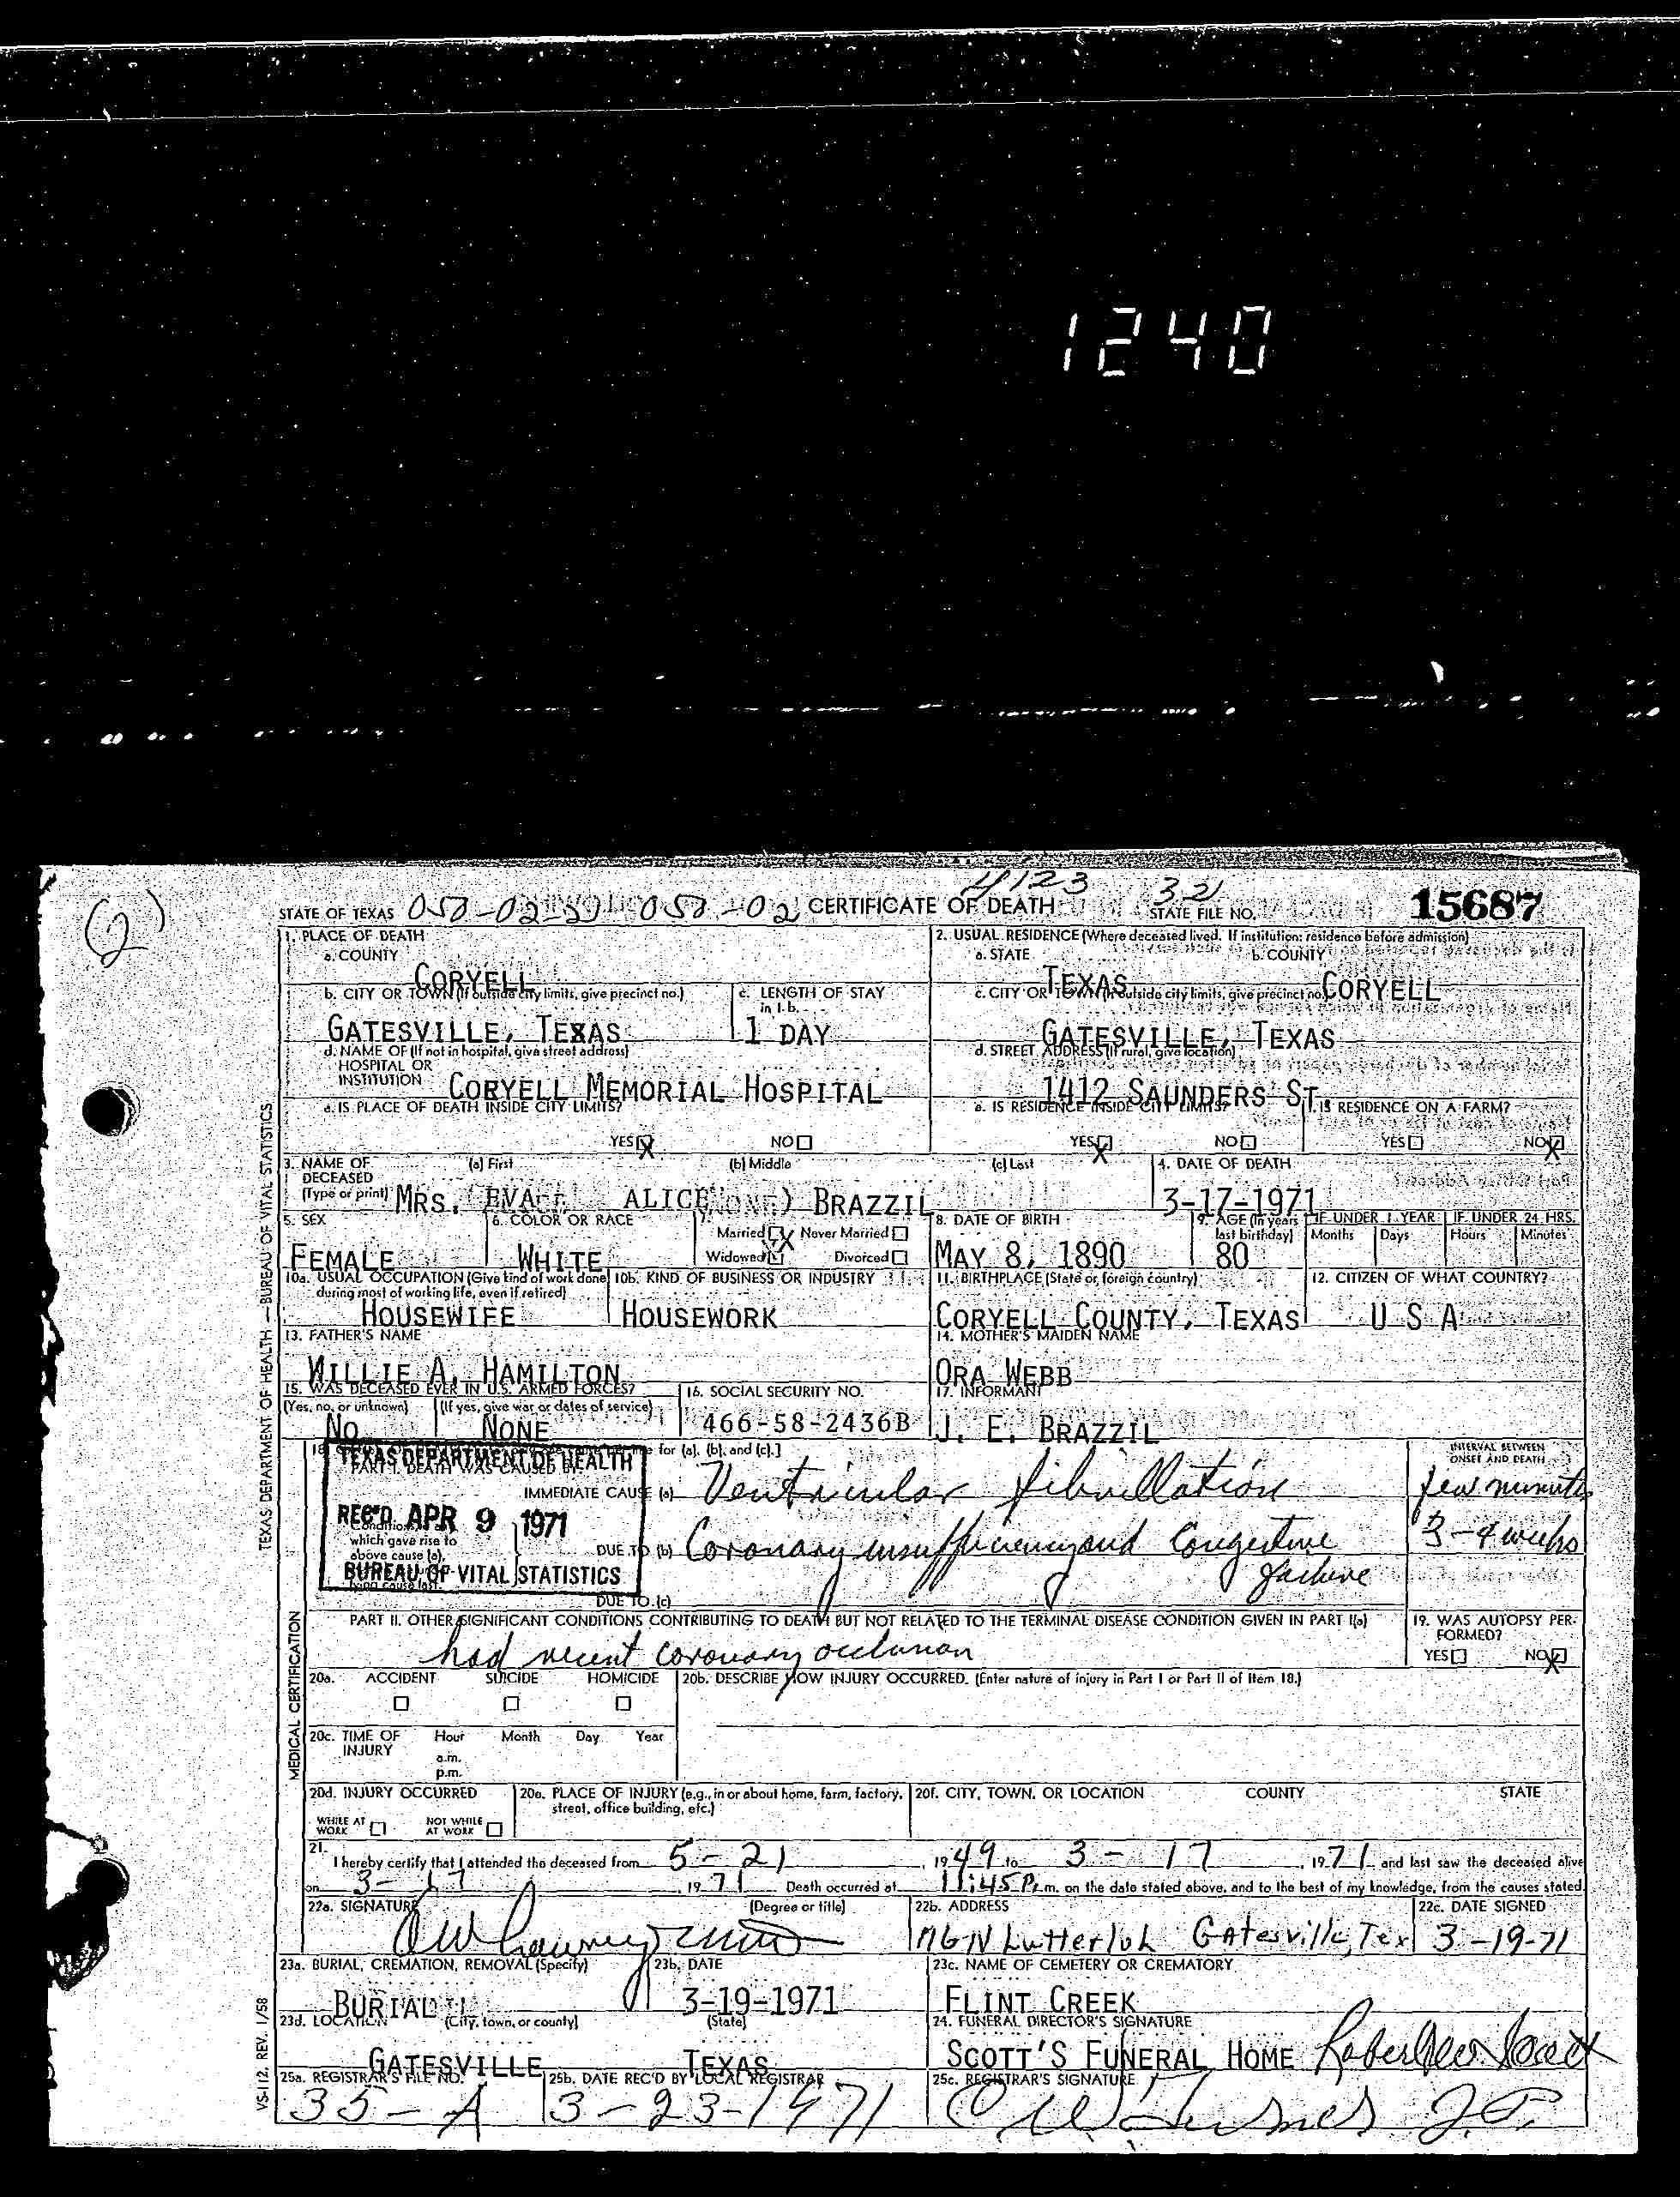 1240
(2)
4123 32
STATE OF TEXAS 050-02- 050-02 CERTIFICATE OF DEATH STATE FILE NO. 15687
1. PLACE OF DEATH
a. COUNTY
CORYELL
b. CITY OR TOWN (If outside city limits, give precinct no.) c. LENGTH OF STAY in 1.b.
GATESVILLE, TEXAS 1 DAY
d. NAME OF (If not in hospital, give street address)
HOSPITAL OR
INSTITUTION CORYELL MEMORIAL HOSPITAL
e. IS PLACE OF DEATH INSIDE CITY LIMITS?
YES X NO
2. USUAL RESIDENCE (Where deceased lived. If institution: residence before admission)
a. STATE b. COUNTY
TEXAS CORYELL
c. CITY OR TOWN (If outside city limits, give precinct no.)
GATESVILLE, TEXAS
d. STREET ADDRESS (If rural, give location)
1412 SAUNDERS ST.
e. IS RESIDENCE INSIDE CITY LIMITS? f. IS RESIDENCE ON A FARM?
YES X NO YES NO X
3. NAME OF DECEASED (Type or print) (a) First (b) Middle (c) Last 4. DATE OF DEATH
MRS. EVA ALICE BRAZZIL 3-17-1971
5. SEX 6. COLOR OR RACE 7. Married X Never Married Widowed Divorced 8. DATE OF BIRTH 9. AGE (In years last birthday) IF UNDER 1 YEAR Months Days IF UNDER 24 HRS. Hours Minutes
FEMALE WHITE MAY 8, 1890 80
10a. USUAL OCCUPATION (Give kind of work done during most of working life, even if retired) 10b. KIND OF BUSINESS OR INDUSTRY 11. BIRTHPLACE (State or foreign country) 12. CITIZEN OF WHAT COUNTRY?
HOUSEWIFE HOUSEWORK CORYELL COUNTY, TEXAS U S A
13. FATHER'S NAME 14. MOTHER'S MAIDEN NAME
WILLIE A. HAMILTON ORA WEBB
15. WAS DECEASED EVER IN U.S. ARMED FORCES? (Yes, no, or unknown) (If yes, give war or dates of service) 16. SOCIAL SECURITY NO. 17. INFORMANT
NO NONE 466-58-2436B J. E. BRAZZIL
18. for (a), (b), and (c).] INTERVAL BETWEEN ONSET AND DEATH
TEXAS DEPARTMENT OF HEALTH
PART I. DEATH WAS CAUSED BY:
IMMEDIATE CAUSE (a) Ventricular fibrillation few minutes
REC'D APR 9 1971
which gave rise to
above cause (a),
DUE TO (b) Coronary insufficiency and Congestive failure 3-4 weeks
BUREAU OF VITAL STATISTICS
lying cause last.
DUE TO (c)
PART II. OTHER SIGNIFICANT CONDITIONS CONTRIBUTING TO DEATH BUT NOT RELATED TO THE TERMINAL DISEASE CONDITION GIVEN IN PART I(a) 19. WAS AUTOPSY PERFORMED?
had recent coronary occlusion YES NO X
20a. ACCIDENT SUICIDE HOMICIDE 20b. DESCRIBE HOW INJURY OCCURRED. (Enter nature of injury in Part I or Part II of Item 18.)
20c. TIME OF INJURY Hour Month Day Year
a.m.
p.m.
20d. INJURY OCCURRED 20e. PLACE OF INJURY (e.g., in or about home, farm, factory, street, office building, etc.) 20f. CITY, TOWN, OR LOCATION COUNTY STATE
WHILE AT WORK NOT WHILE AT WORK
21. I hereby certify that I attended the deceased from 5-21, 1949 to 3-17, 1971 and last saw the deceased alive
on 3-17, 1971 Death occurred at 11:45 P.m. on the date stated above, and to the best of my knowledge, from the causes stated.
22a. SIGNATURE (Degree or title) 22b. ADDRESS 22c. DATE SIGNED
N Lutterloh Gatesville, Tex 3-19-71
23a. BURIAL, CREMATION, REMOVAL (Specify) 23b. DATE 23c. NAME OF CEMETERY OR CREMATORY
BURIAL 3-19-1971 FLINT CREEK
23d. LOCATION (City, town, or county) (State) 24. FUNERAL DIRECTOR'S SIGNATURE
GATESVILLE, TEXAS SCOTT'S FUNERAL HOME
25a. REGISTRAR'S FILE NO. 25b. DATE REC'D BY LOCAL REGISTRAR 25c. REGISTRAR'S SIGNATURE
35-A 3-23-1971
TEXAS DEPARTMENT OF HEALTH — BUREAU OF VITAL STATISTICS
MEDICAL CERTIFICATION
VS-112, REV. 1/58